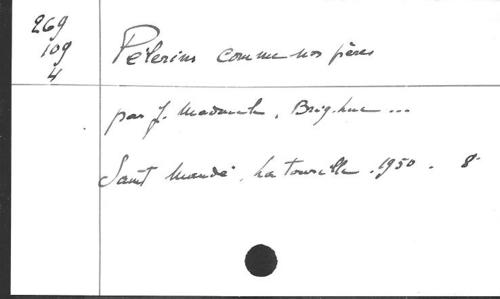 269
109
4
Pèlerins comme nos pères
par J. Madaule, Brig. Luc ...
Saint Mandé, La Tourelle, 1950. 8°